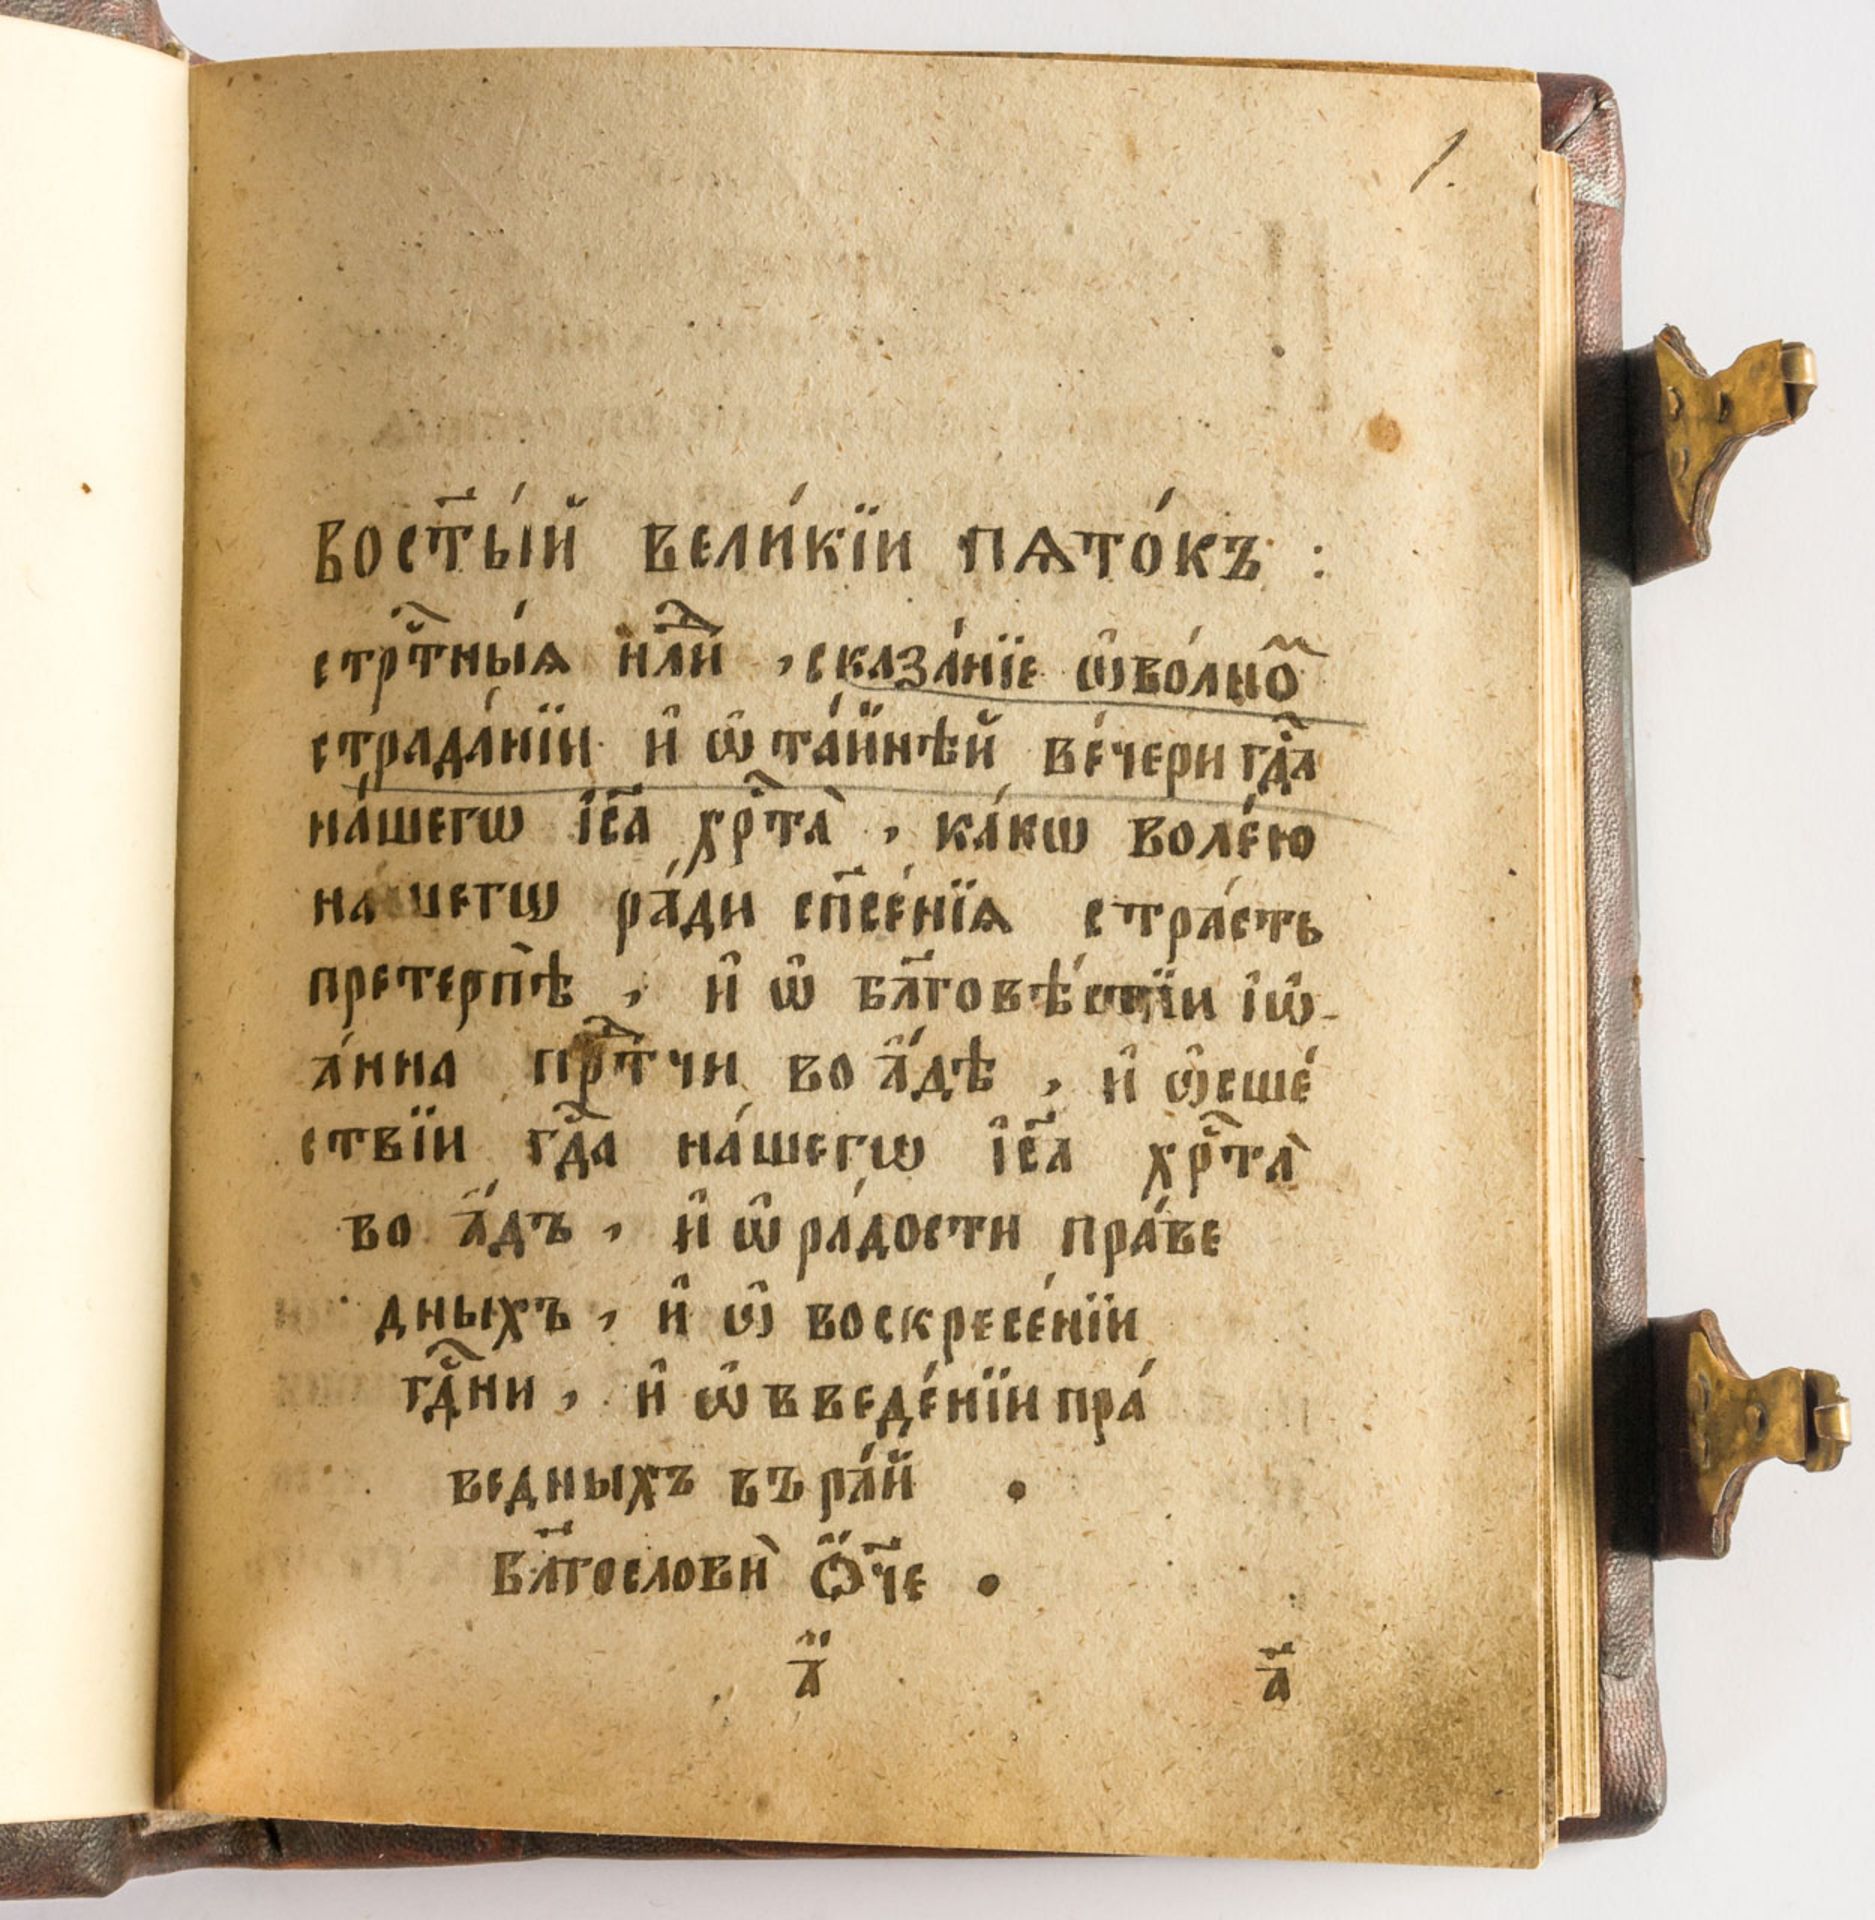 1.
Восты́й вели́кїи пѧто́къ :
стрⷭ҇тны́ѧ нⷣ҇ли , сказа́нїе ѡ҆во́лноⷨ
страда́нїи и҆ ѡ҆ та́йнѣй ве́чери гдⷭ҇а
на́шегѡ і҆с҃а хрⷭ҇та̀ , ка́кѡ воле́ю
на́шегѡ ра́ди сп҃се́нїѧ стра́сть
претерпѣ̀ , и҆ ѡ҆ бл҃говѣ́стїи і҆ѡ-
а́нна прⷣ҇тчи во а҆́дѣ , и҆ ѡ҆сше́
ствїи гдⷭ҇а на́шегѡ і҆с҃а хрⷭ҇та̀
во а҆́дъ , и҆ ѡ҆ ра́дости пра́ве
дныхъ , и҆ ѡ҆ воскресе́нїи
гдⷭ҇ни , и҆ ѡ҆ введе́нїи пра́
ведныхъ въ ра́й .
бл҃гословѝ ѻ҆́ч҃е .
а҆́ а҃